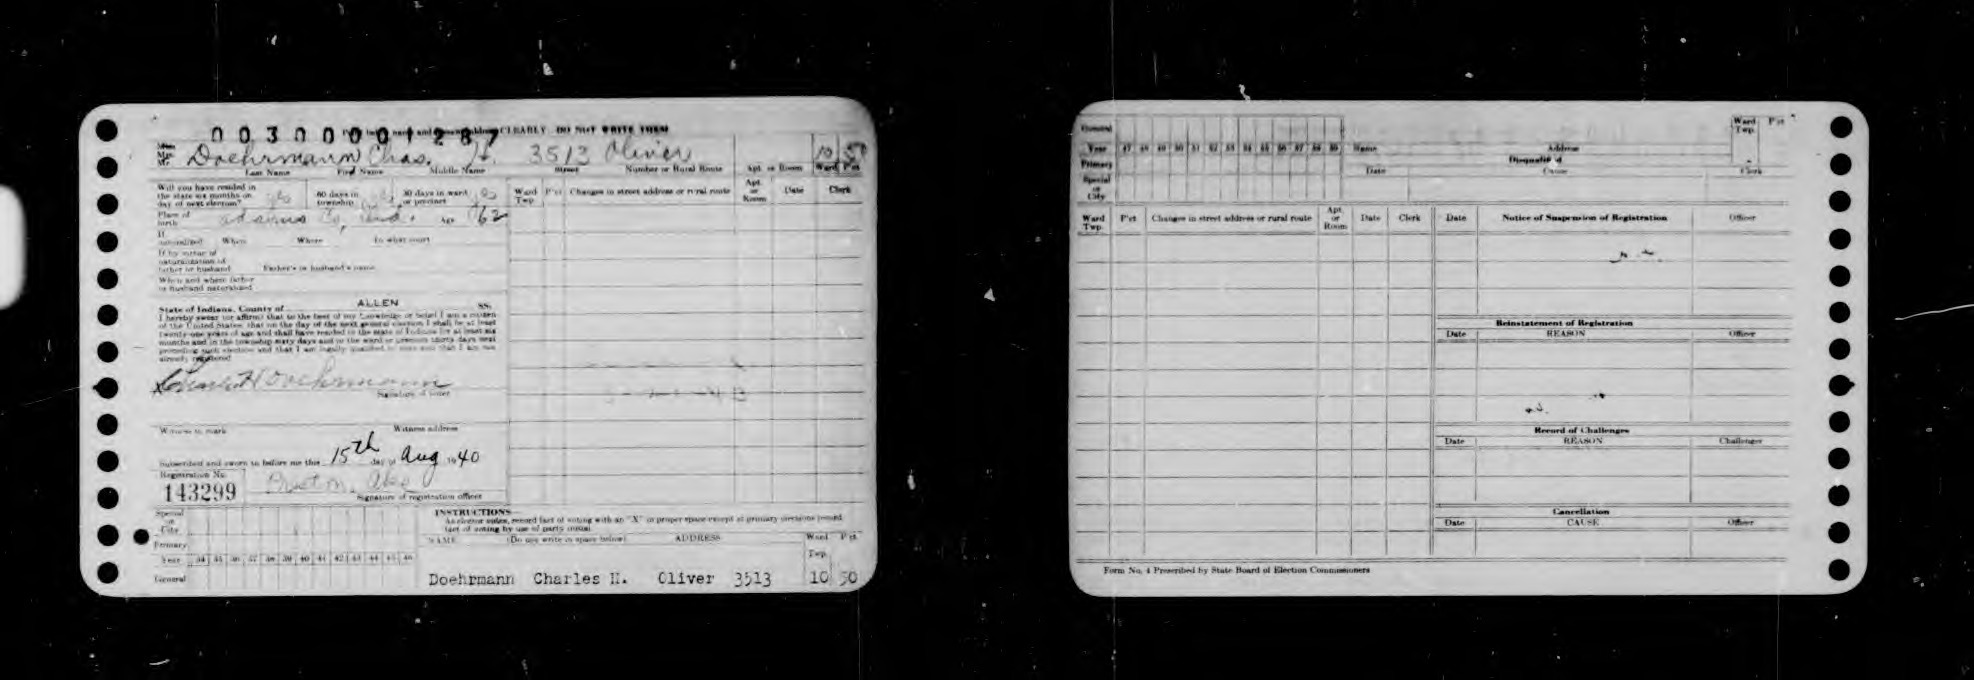 00300001287
CLEARLY DO NOT WRITE THEM
Doehrmann Chas. H. 3513 Oliver 10 50
Last Name First Name Middle Name Street Number or Rural Route Apt. or Room Ward P'ct
Will you have resided in
the state six months on
day of next election? yes
60 days in
township yes
30 days in ward
or precinct yes
Place of
birth Adams Co, Ind. Age 62
If
naturalized When Where In what court
If by virtue of
naturalization of
father or husband Father's or husband's name
When and where father
or husband naturalized
Ward
Twp. P'ct Changes in street address or rural route Apt.
or
Room Date Clerk
State of Indiana, County of ALLEN SS:
I hereby swear (or affirm) that to the best of my knowledge or belief I am a citizen
of the United States; that on the day of the next general election I shall be at least
twenty-one years of age and shall have resided in the state of Indiana for at least six
months and in the township sixty days and in the ward or precinct thirty days next
preceding such election and that I am legally qualified to vote and that I am not
already registered
Charles H Doehrmann
Signature of voter
Witness to mark Witness address
Subscribed and sworn to before me this 15th day of Aug 1940
Registration No.
143299
Signature of registration officer
INSTRUCTIONS
As elector votes, record fact of voting with an "X" in proper space except at primary elections record
fact of voting by use of party initial
Special
or
City
Primary
Year 34 35 36 37 38 39 40 41 42 43 44 45 46
General
NAME (Do not write in space below) ADDRESS Ward
Twp. P'ct
Doehrmann Charles H. Oliver 3513 10 50
General
Year 47 48 49 50 51 52 53 54 55 56 57 58 59
Primary
Special
or
City
Name Address Ward
Twp. P'ct
Disqualified
Date Cause Clerk
Ward
Twp. P'ct Changes in street address or rural route Apt.
or
Room Date Clerk
Date Notice of Suspension of Registration Officer
Reinstatement of Registration
Date REASON Officer
Record of Challenges
Date REASON Challenger
Cancellation
Date CAUSE Officer
Form No. 4 Prescribed by State Board of Election Commissioners